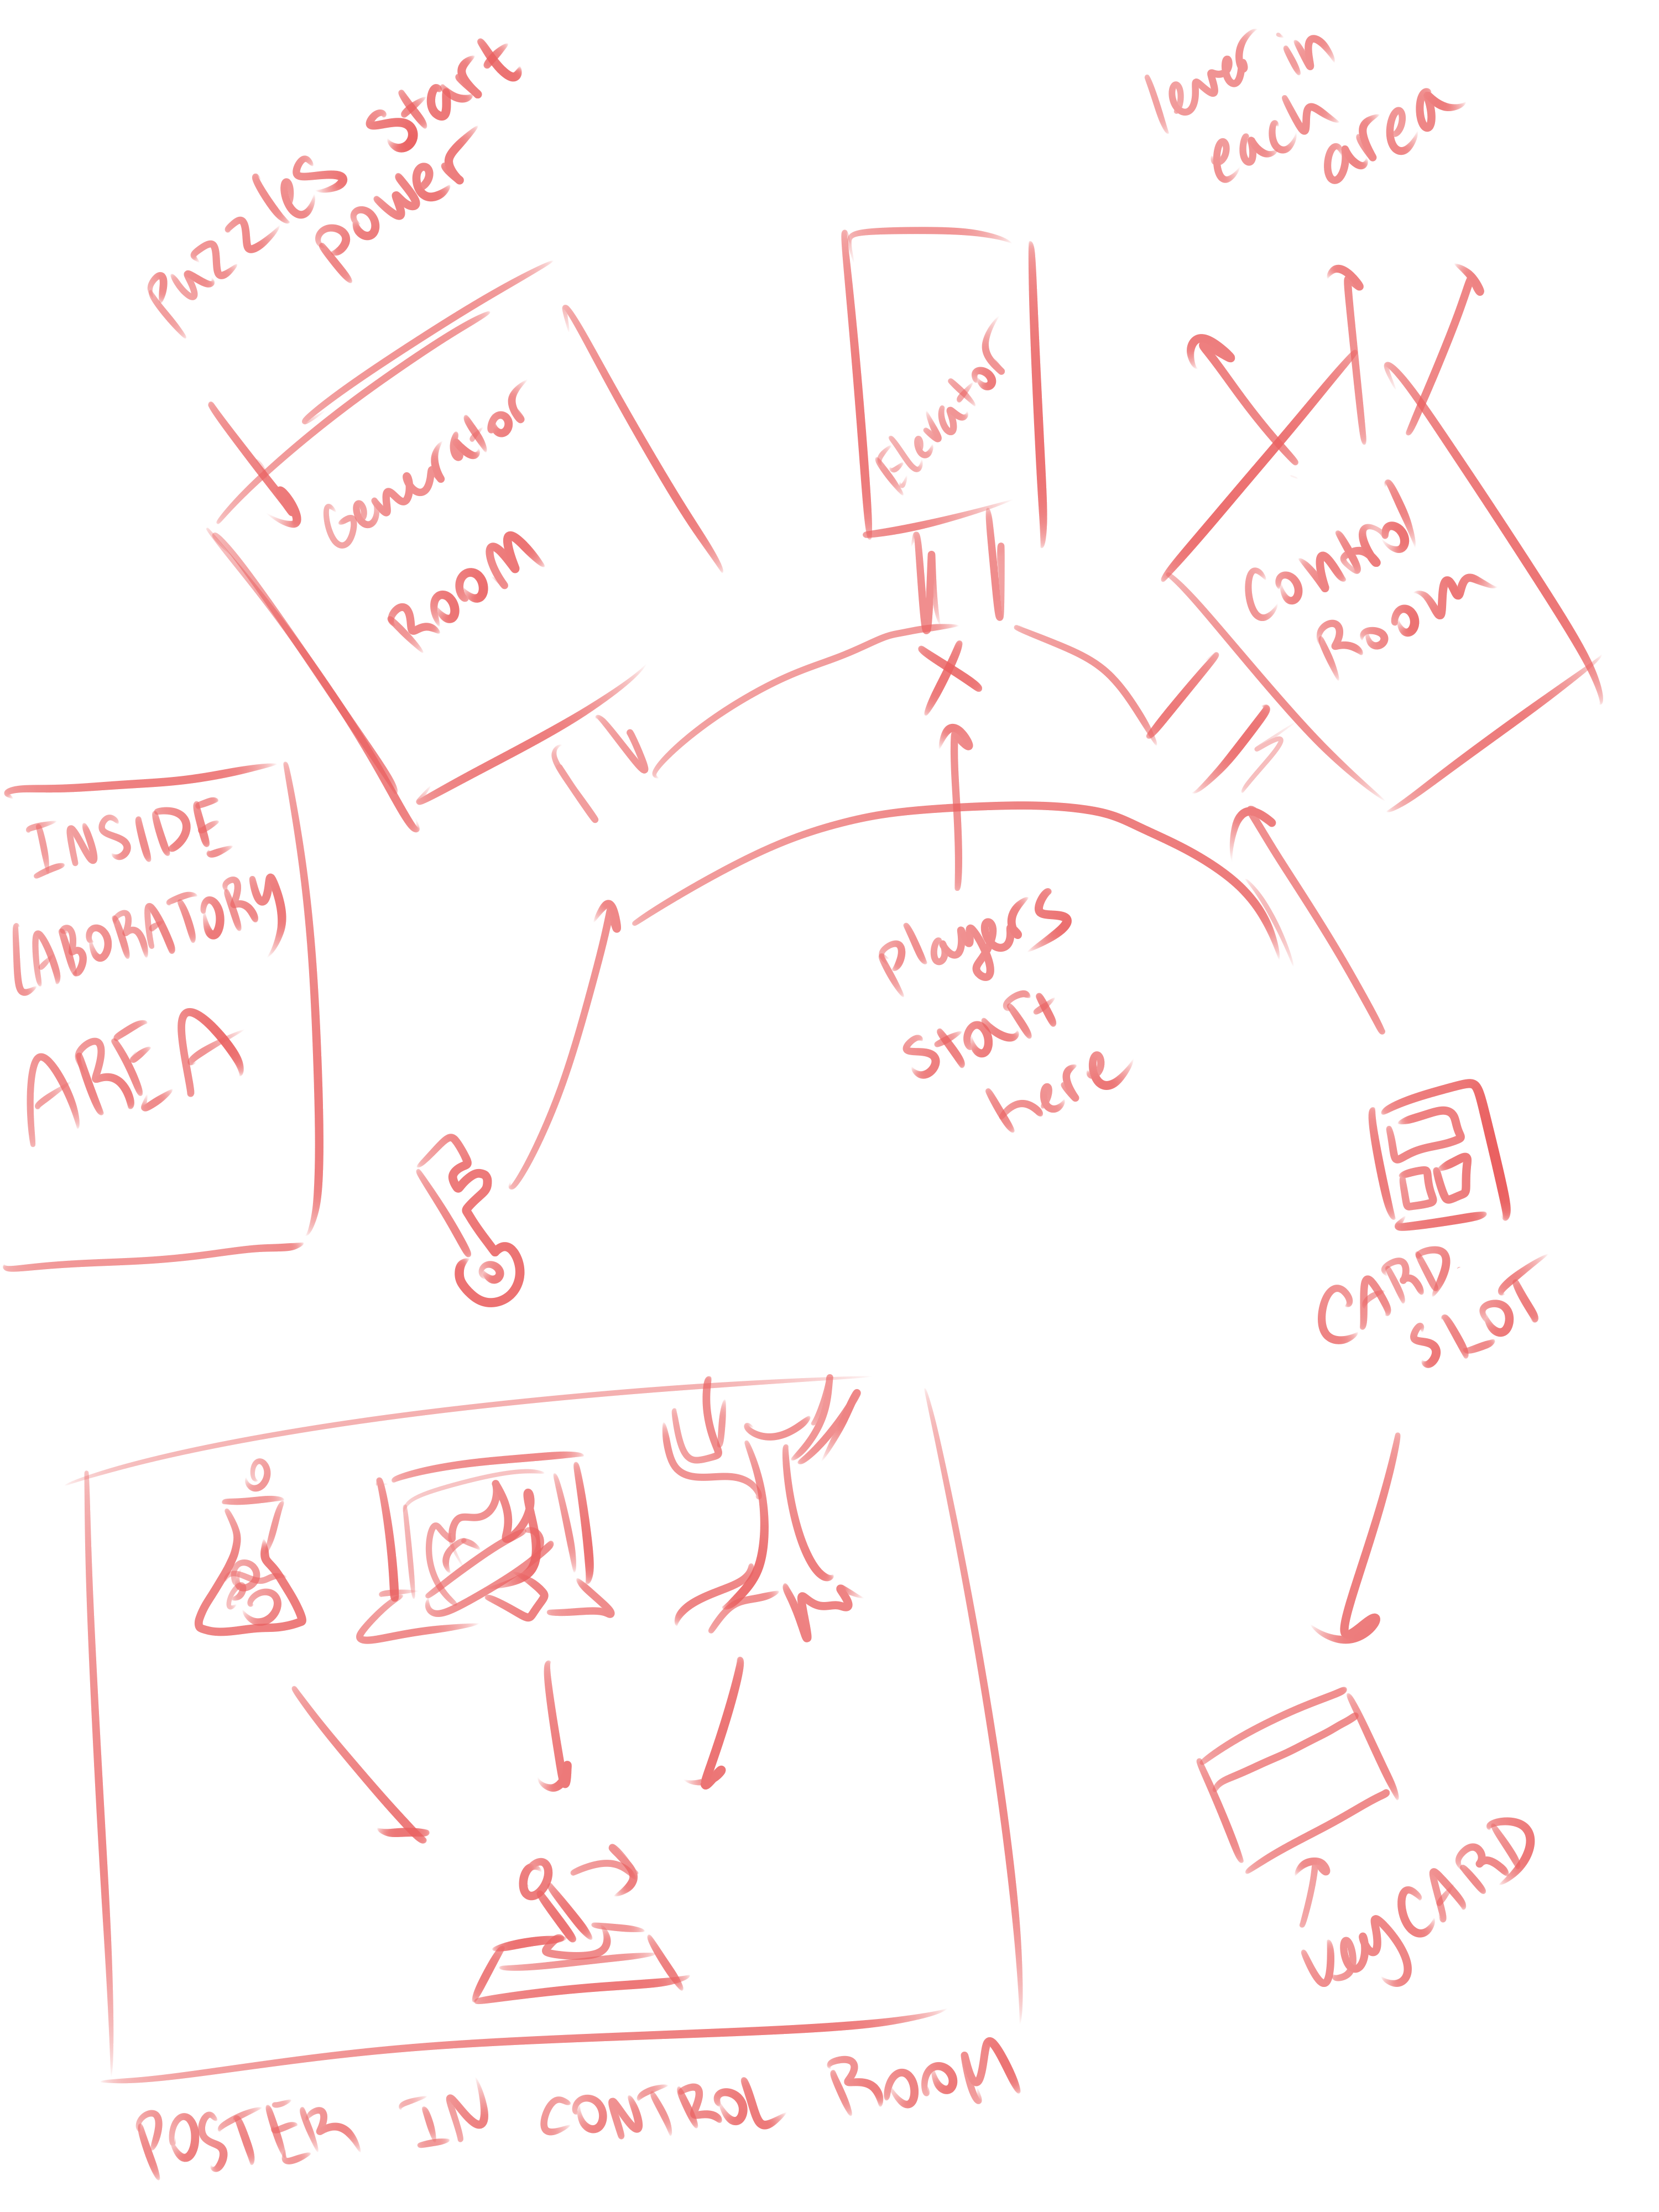 puzzles start
power
lever in
each
area
Generator
ROOM
Elevator
Control
Room
INSIDE
LABORATORY
AREA
players
start
here
CARD
SLOT
keyCARD
POSTER IN CONTROL ROOM